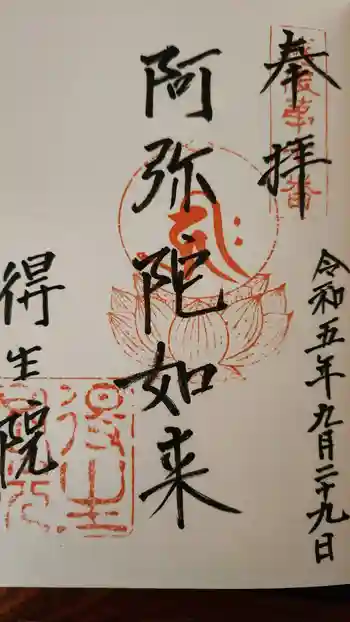 奉拝
令和五年九月二十九日
阿弥陀如来
得生院